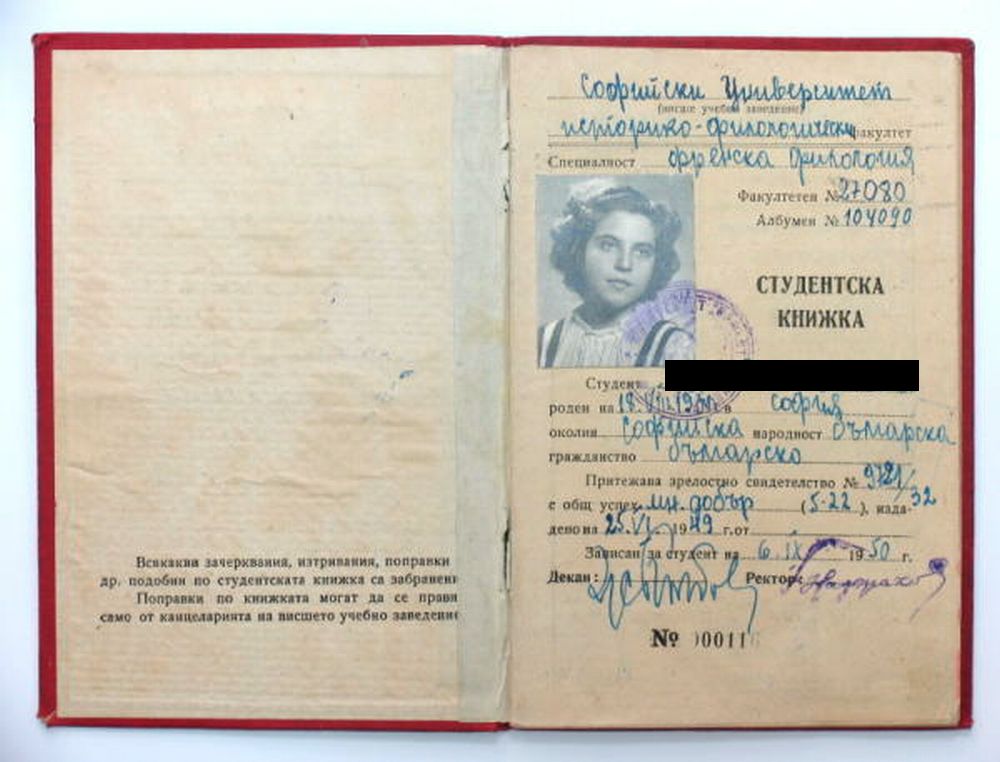 Всякакви зачерквания, изтривания, поправки
др. подобни по студентската книжка са забранени
Поправки по книжката могат да се прави
само от канцеларията на висшето учебно заведение
Софийски Университет
(висше учебно заведение)
историко-филологически факултет
Специалност френска филология
Факултетен № 27080
Албумен № 104090
СТУДЕНТСКА
КНИЖКА
Студент
роден на 18.VIII.1930 в София
околия Софийска народност българска
гражданство българско
Притежава зрелостно свидетелство № 9721/
32
с общ успех мн. добър (5-22), изда-
дено на 25.VI. 1949 г. от
Записан за студент на 6.IX 1950 г.
Декан: Ректор:
№ 00011